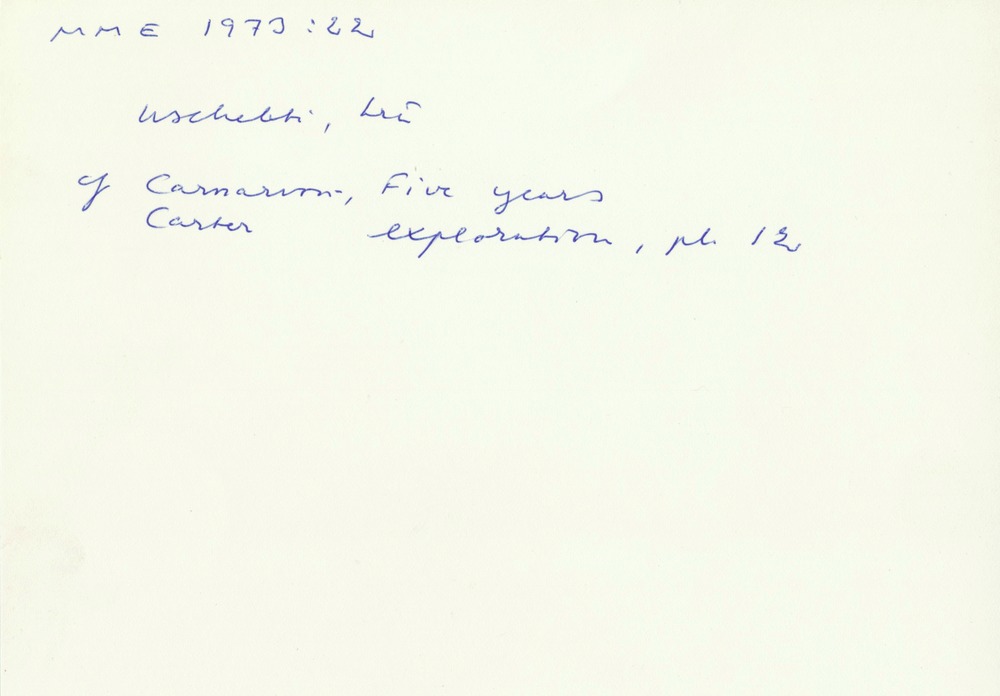 MME 1973:22
Uschebti, trä
cf Carnarvon-, Five years
Carter exploration, pl. 12